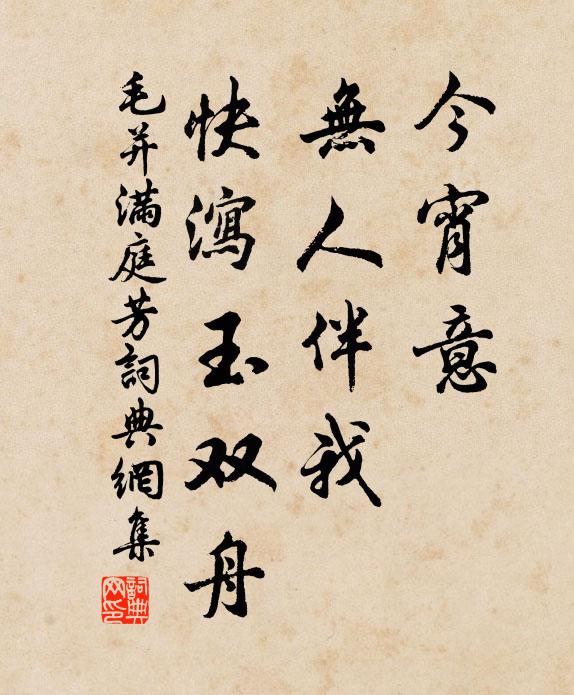 今宵意
無人伴我
快瀉玉双舟
毛并滿庭芳詞典網集
詞典网印